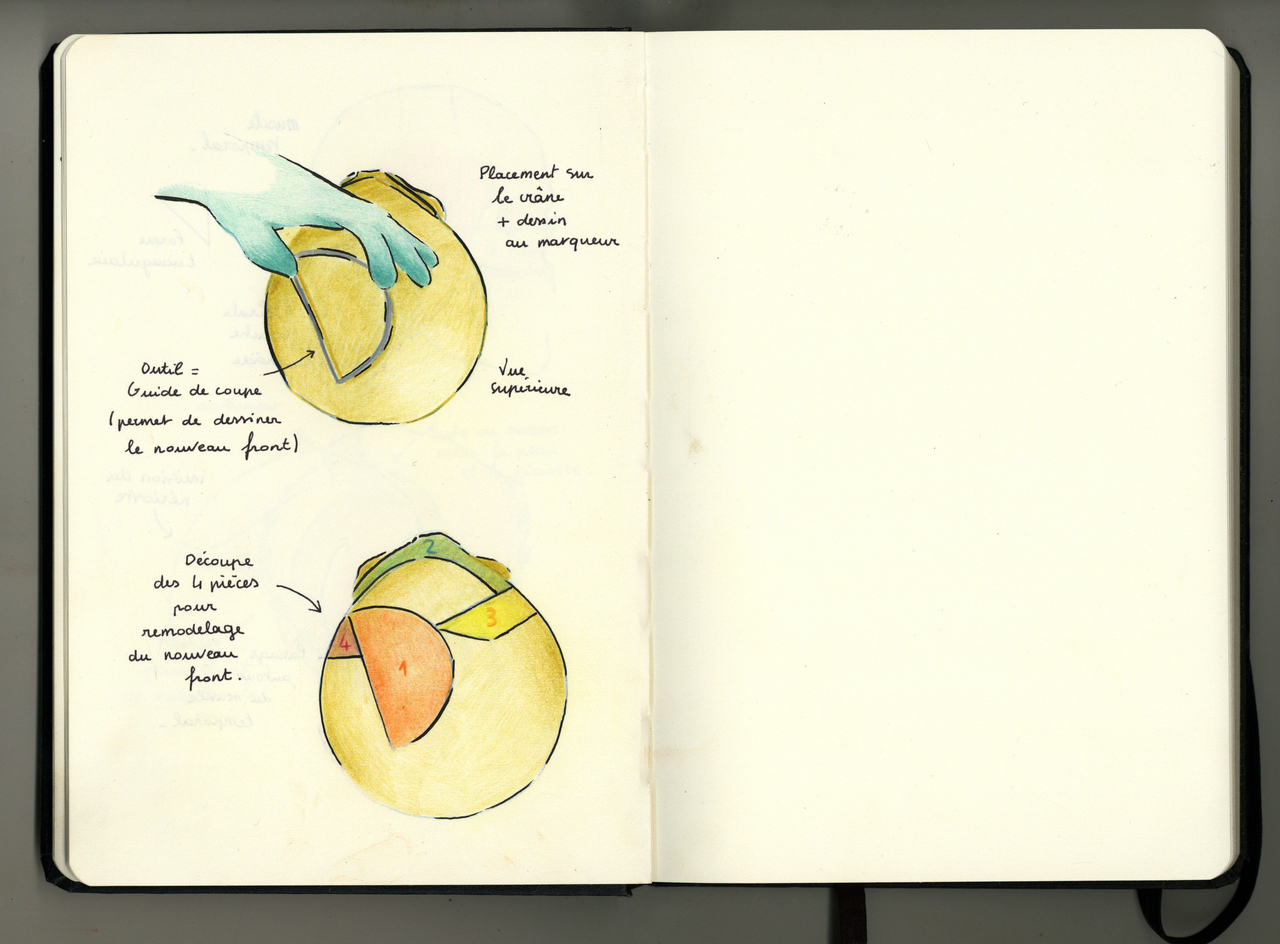 Placement sur
le crâne
+ dessin
au marqueur
Outil =
Guide de coupe
(permet de dessiner
le nouveau front)
Vue
supérieure
Découpe
des 4 pièces
pour
remodelage
du nouveau
front.
2
3
4
1